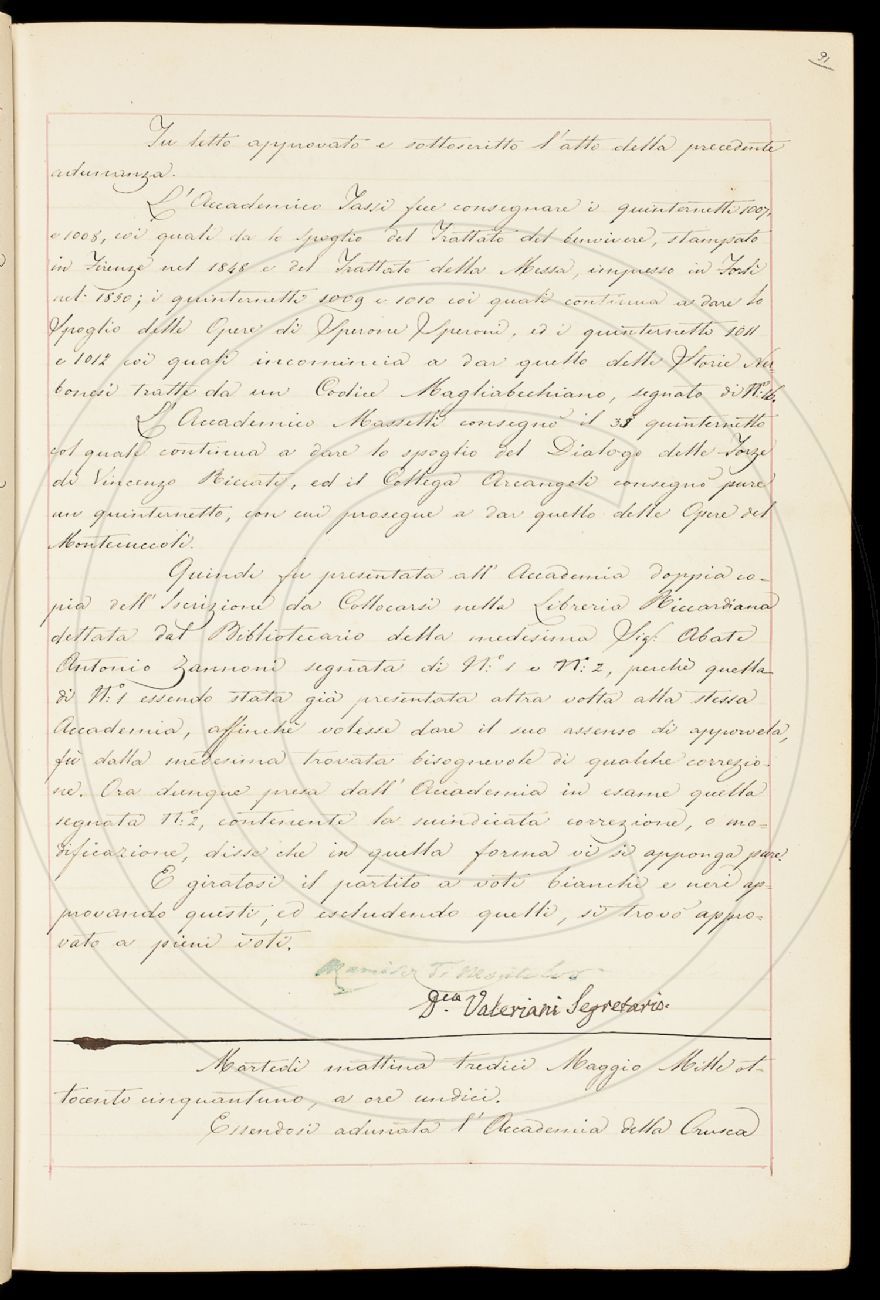 91
Fu letto approvato e sottoscritto l'atto della precedente
adunanza.
L'Accademico Tassi fece consegnare i quinternetti 1007,
e 1008, coi quali da lo spoglio del Trattato del benvivere, stampato
in Firenze nel 1848 e del Trattato della Messa, impresso in Forlì
nel 1850; i quinternetti 1009 e 1010 coi quali continua a dare lo
Spoglio delle Opere di Sperone Speroni, ed i quinternetti 1011
e 1012 coi quali incomincia a dar quello delle Storie Ner
bonesi tratte da un Codice Magliabechiano, segnato di N.º 16.
L'Accademico Masselli consegnò il 38 quinternetto
col quale continua a dare lo spoglio del Dialogo delle Forze
di Vincenzo Riccati, ed il Collega Arcangeli consegnò pure
un quinternetto, con cui prosegue a dar quello delle Opere del
Montecuccoli.
Quindi fu presentata all'Accademia doppia co-
pia dell'Iscrizione da Collocarsi nella Libreria Riccardiana
dettata dal Bibliotecario della medesima Sig. Abate
Antonio Zannoni segnata di N.º 1 e N.º 2, perchè quella
di N.º 1 essendo stata già presentata altra volta alla stessa
Accademia, affinchè volesse dare il suo assenso di apporvela,
fù dalla medesima trovata bisognevole di qualche correzio-
ne. Ora dunque presa dall'Accademia in esame quella
segnata N.º 2, contenente la suindicata correzione, o mo-
dificazione, disse che in quella forma vi si apponga pure.
E giratosi il partito a voti bianchi e neri ap-
provando questi, ed escludendo quelli, si trovò appro-
vato a pieni voti.
Valeriani Segretario.
Martedì mattina tredici Maggio Mille ot-
tocento cinquantuno, a ore undici.
Essendosi adunata l'Accademia della Crusca